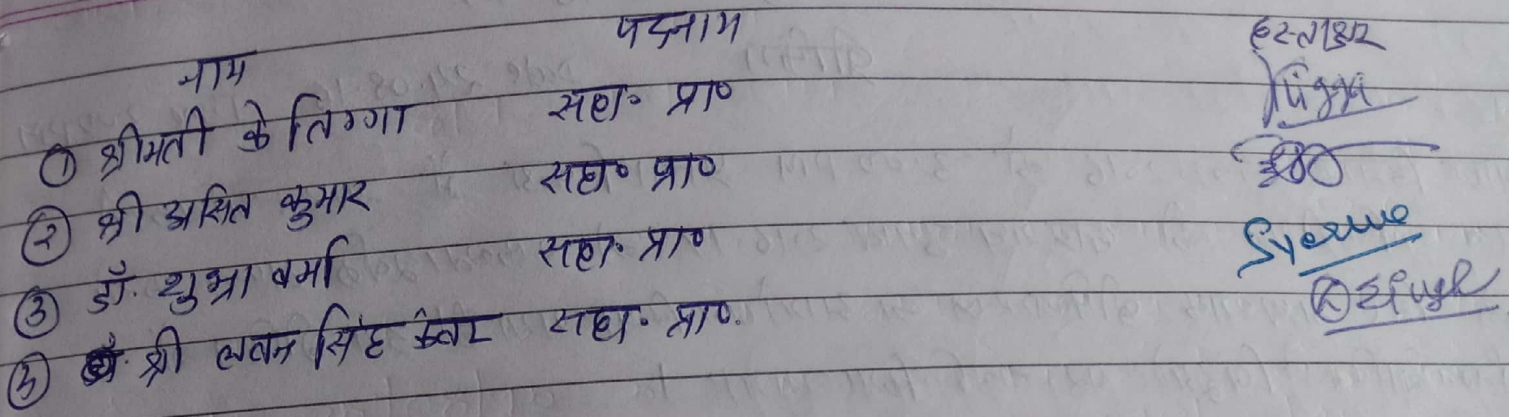 नाम पदनाम हस्ताक्षर
① श्रीमती के तिग्गा सहा॰ प्रा॰ Tigga
② श्री असित कुमार सहा॰ प्रा॰
③ डॉ. शुभ्रा वर्मा सहा. प्रा॰
श्री लवन सिंह कंवर सहा. प्रा. Singh